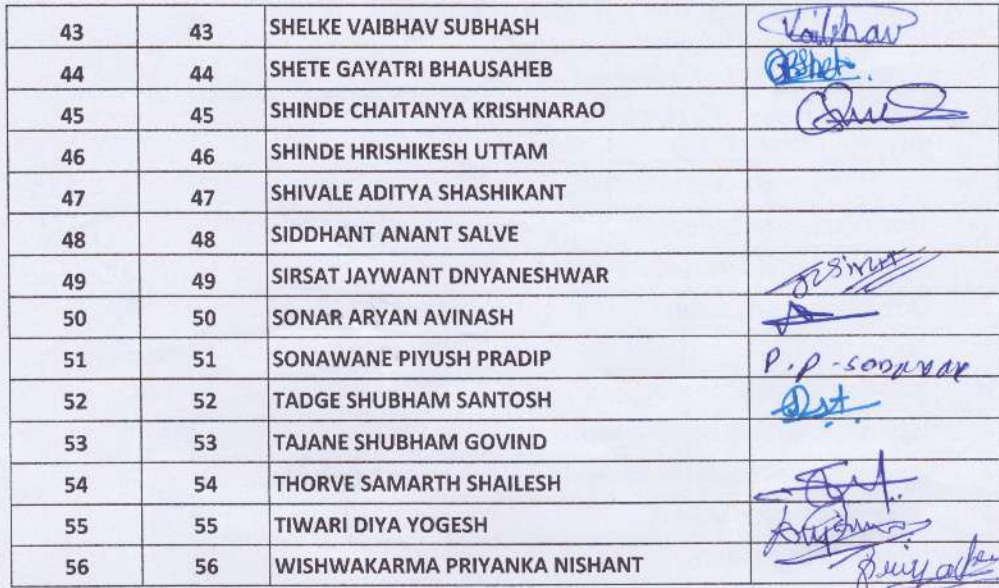 43 43 SHELKE VAIBHAV SUBHASH Vaibhav
44 44 SHETE GAYATRI BHAUSAHEB
45 45 SHINDE CHAITANYA KRISHNARAO
46 46 SHINDE HRISHIKESH UTTAM
47 47 SHIVALE ADITYA SHASHIKANT
48 48 SIDDHANT ANANT SALVE
49 49 SIRSAT JAYWANT DNYANESHWAR
50 50 SONAR ARYAN AVINASH
51 51 SONAWANE PIYUSH PRADIP P.P-sonawane
52 52 TADGE SHUBHAM SANTOSH
53 53 TAJANE SHUBHAM GOVIND
54 54 THORVE SAMARTH SHAILESH
55 55 TIWARI DIYA YOGESH
56 56 WISHWAKARMA PRIYANKA NISHANT